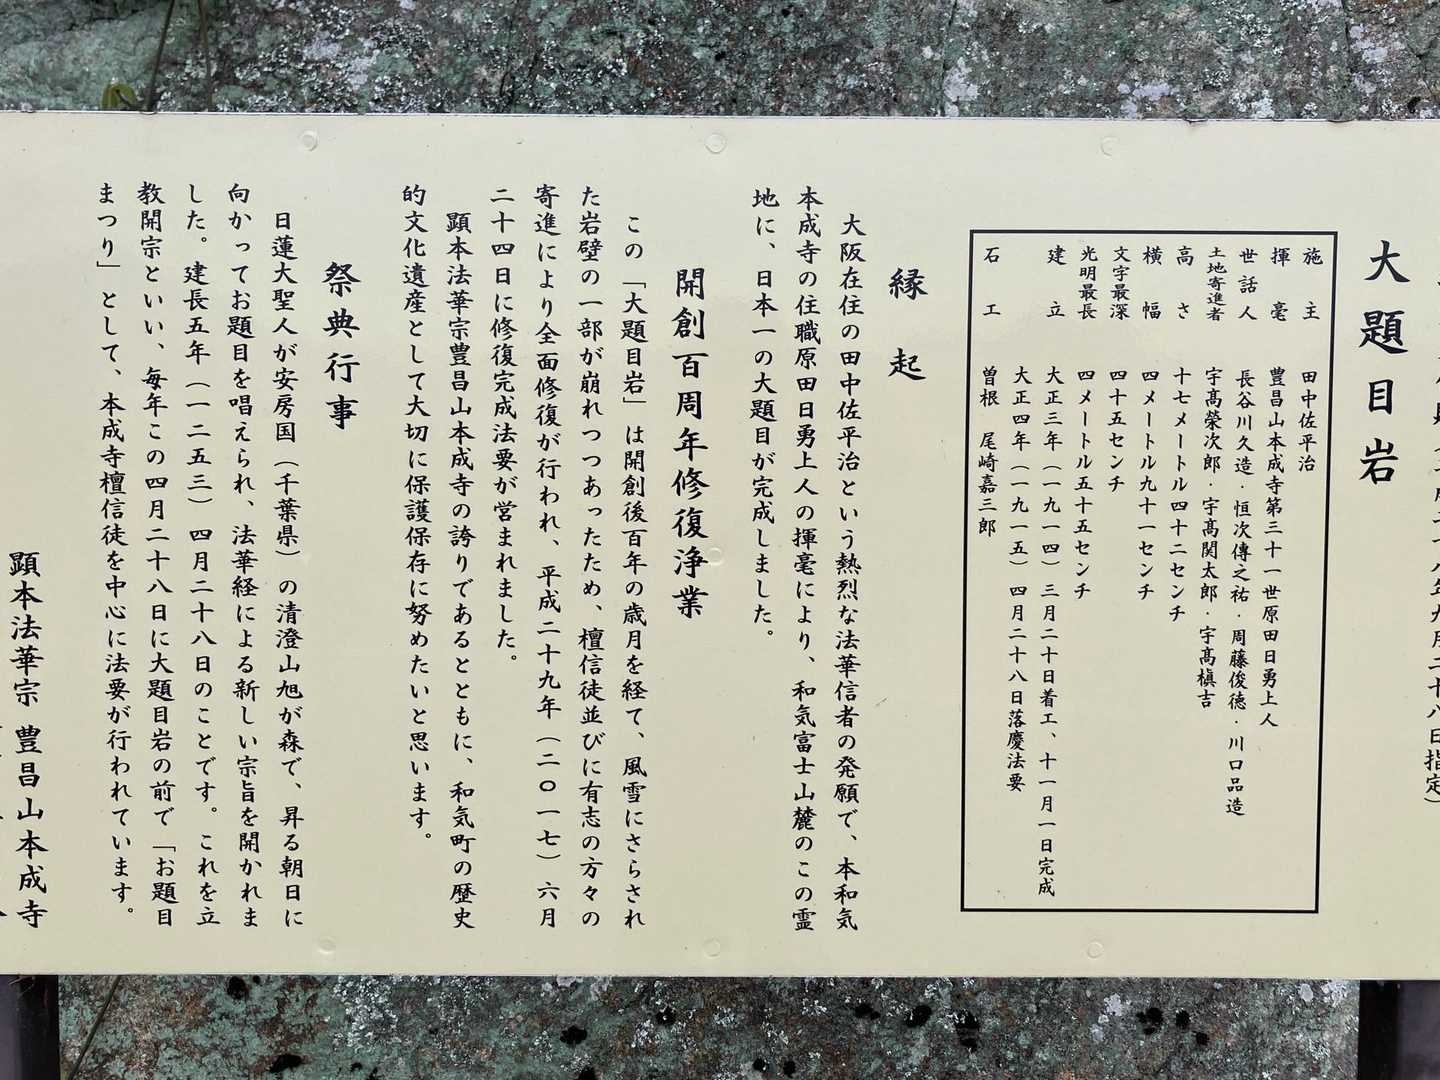 大題目岩
施主 田中佐平治
揮毫 豊昌山本成寺第三十一世原田日勇上人
世話人 長谷川久造・恒次傳之祐・周藤俊徳・川口品造
土地寄進者 宇髙榮次郎・宇髙関太郎・宇髙槇吉
高さ 十七メートル四十二センチ
横幅 四メートル九十一センチ
文字最深 四十五センチ
光明最長 四メートル五十五センチ
建立 大正三年(一九一四)三月二十日着工、十一月一日完成
大正四年(一九一五)四月二十八日落慶法要
石工 曽根 尾崎嘉三郎
縁起
大阪在住の田中佐平治という熱烈な法華信者の発願で、本和気
本成寺の住職原田日勇上人の揮毫により、和気富士山麓のこの霊
地に、日本一の大題目が完成しました。
開創百周年修復浄業
この「大題目岩」は開創後百年の歳月を経て、風雪にさらされ
た岩壁の一部が崩れつつあったため、檀信徒並びに有志の方々の
寄進により全面修復が行われ、平成二十九年(二〇一七)六月
二十四日に修復完成法要が営まれました。
顕本法華宗豊昌山本成寺の誇りであるとともに、和気町の歴史
的文化遺産として大切に保護保存に努めたいと思います。
祭典行事
日蓮大聖人が安房国(千葉県)の清澄山旭が森で、昇る朝日に
向かってお題目を唱えられ、法華経による新しい宗旨を開かれま
した。建長五年(一二五三)四月二十八日のことです。これを立
教開宗といい、毎年この四月二十八日に大題目岩の前で「お題目
まつり」として、本成寺檀信徒を中心に法要が行われています。
顕本法華宗 豊昌山本成寺